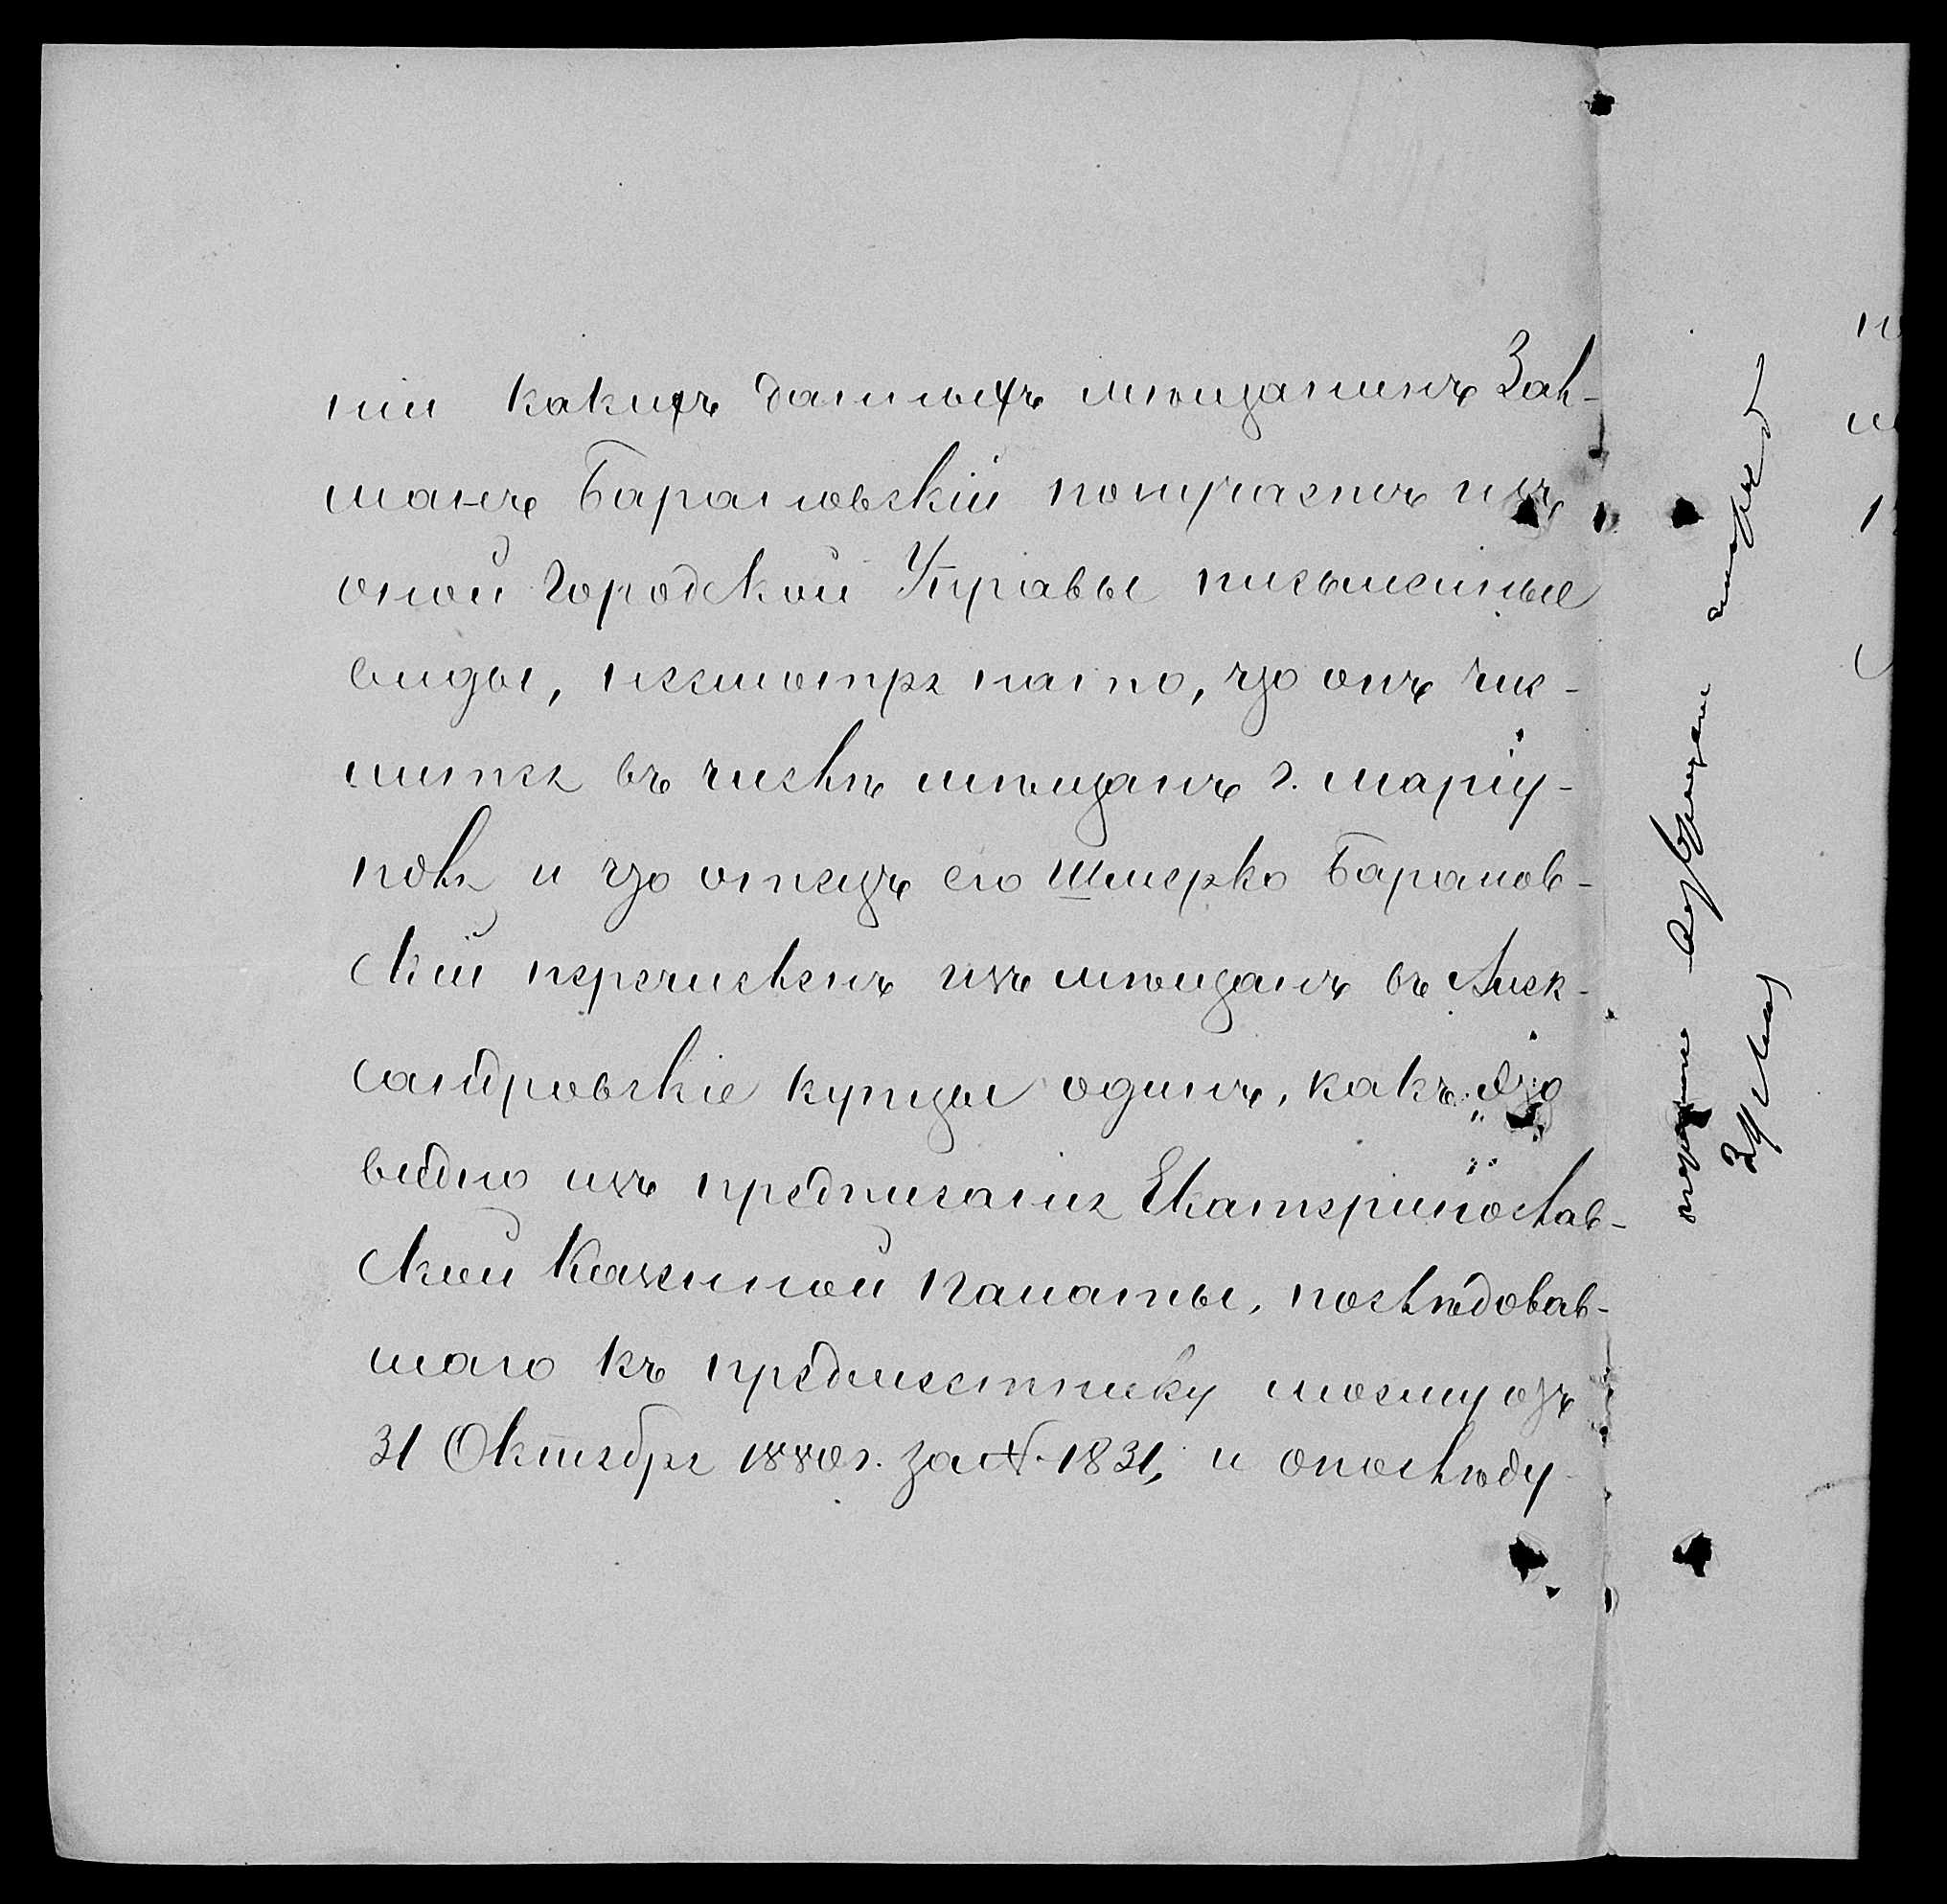 ніи какихъ данныхъ мѣщанинъ Зал-
манъ Барановскій получаетъ изъ
оной Городской Управы письменные
виды, несмотря на то, что онъ чис-
лится въ числѣ мѣщанъ г. Маріу-
поля и что отецъ его Шмерко Баранов-
скій перечисленъ изъ мѣщанъ въ Алек-
сандровскіе купцы одинъ, какъ это
видно изъ предписанія Екатеринослав-
ской Казенной Палаты, послѣдовав-
шаго къ предмѣстнику моему отъ
31 Октября 1880 г. за № 1831, и о послѣду